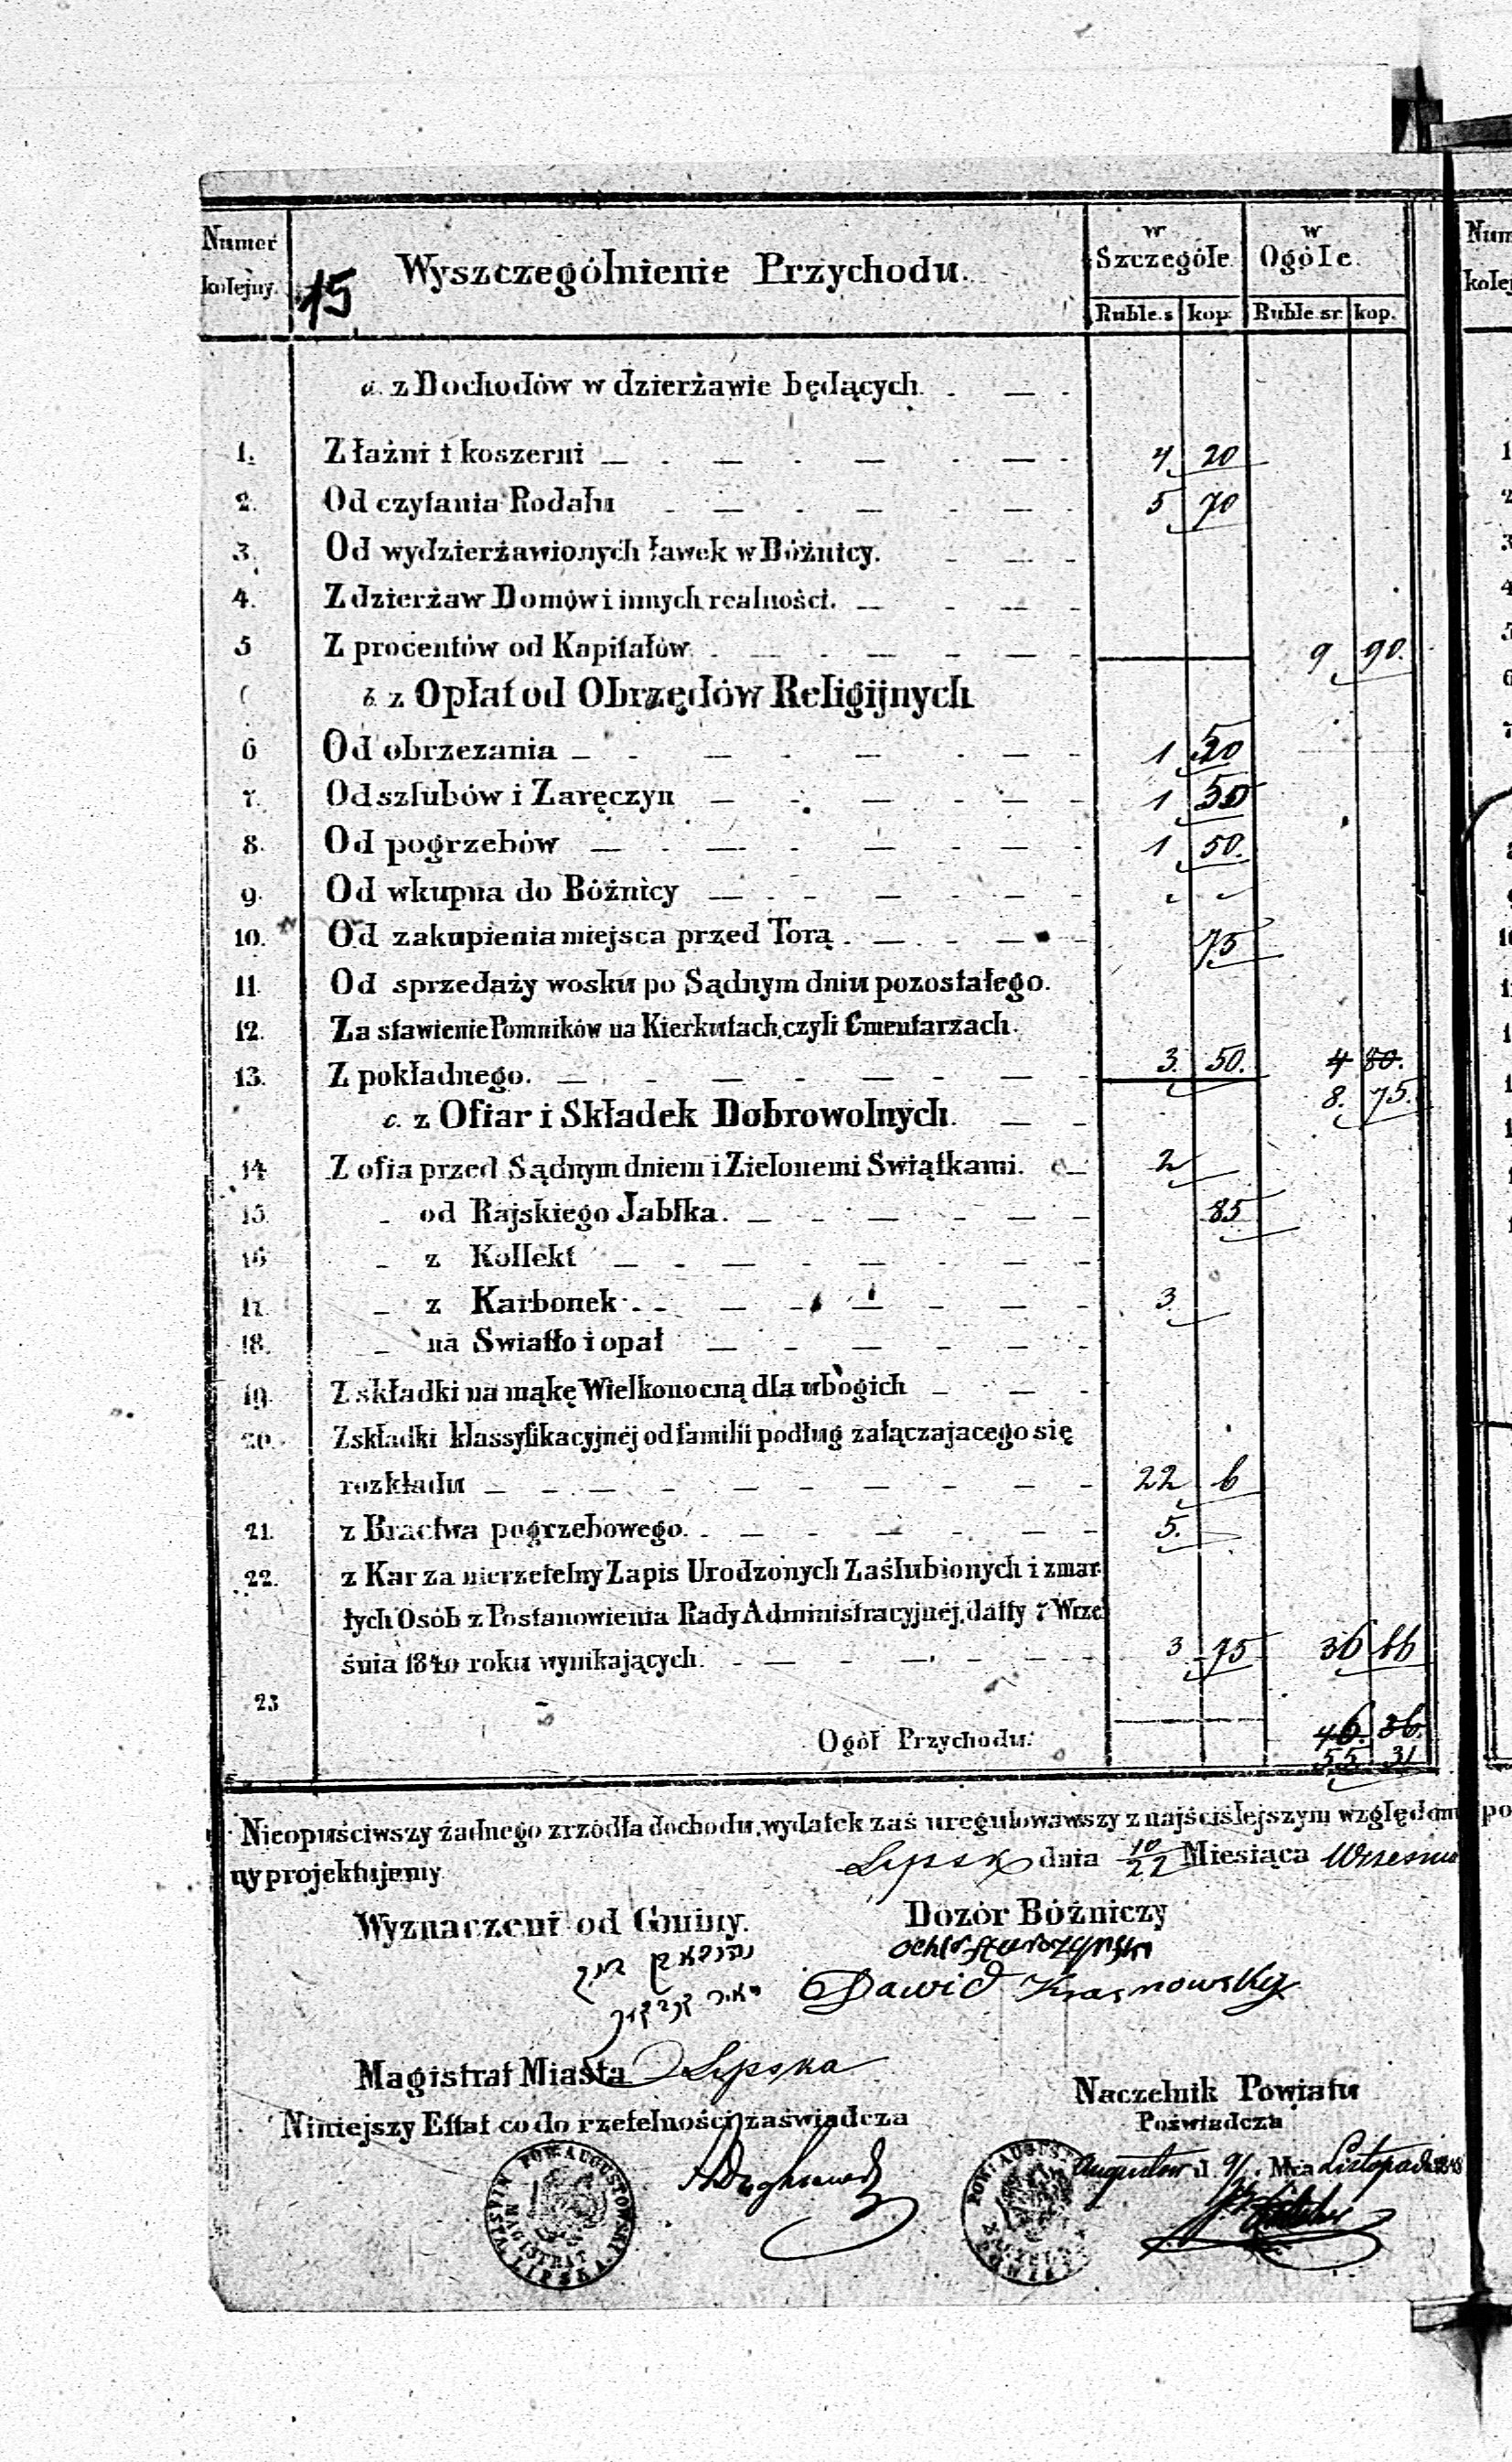 Numer kolejny.
15
Wyszczególnienie Przychodu.
w Szczególe
w Ogóle.
Ruble.s kop. Ruble sr kop.
a. z Dochodów w dzierżawie będących.
1. Z łaźni i koszerni 4 20
2. Od czytania Rodału 5 70
3. Od wydzierżawionych ławek w Bóżnicy.
4. Z dzierżaw Domów i innych realności.
5 Z procentów od Kapitałów. 9 90.
b. z Opłat od Obrzędów Religijnych
6 Od obrzezania 1 50
7. Od szlubów i Zaręczyn 1 50
8. Od pogrzebów 1 50.
9. Od wkupna do Bóżnicy
10. Od zakupienia miejsca przed Torą. 75
11. Od sprzedaży wosku po Sądnym dniu pozostałego.
12. Za stawienie Pomników na Kierkutach, czyli Cmentarzach.
13. Z pokładnego. 3. 50. 4 80.
8. 75.
c. z Ofiar i Składek Dobrowolnych.
14 Z ofia przed Sądnym dniem i Zielonemi Swiątkami. 2
15. od Rajskiego Jabłka. 85
16 z Kollekt
17. z Karbonek 3.
18. na Swiatło i opał
19. Z składki na mąkę Wielkonocną dla ubogich
20. Z składki klassyfikacyjnéj od familii podług załączajacego się
rozkładu 22 6
21. z Bractwa pogrzebowego. 5.
22. z Kar za nierzetelny Zapis Urodzonych Zaślubionych i zmar
łych Osób z Postanowienia Rady Administracyjnéj, datty 7 Wrze
śnia 1840 roku wynikających. 3 75 36 66
23
Ogół Przychodu. 46. 36.
55 31
Nieopuściwszy żadnego zrzódła dochodu, wydatek zaś uregulowawszy z najściślejszym względem
ny projektujemy
Lipsk dnia 10/22 Miesiąca Wrzesnia
Wyznaczeni od Gminy.
Dozór Bóżniczy
Dawid Krasnowsky
Magistrat Miasta Lipska
Niniejszy Ettat co do rzetelności zaświadcza
Naczelnik Powiatu
Poświadcza
Augustow d. 9/ Mca Listopada